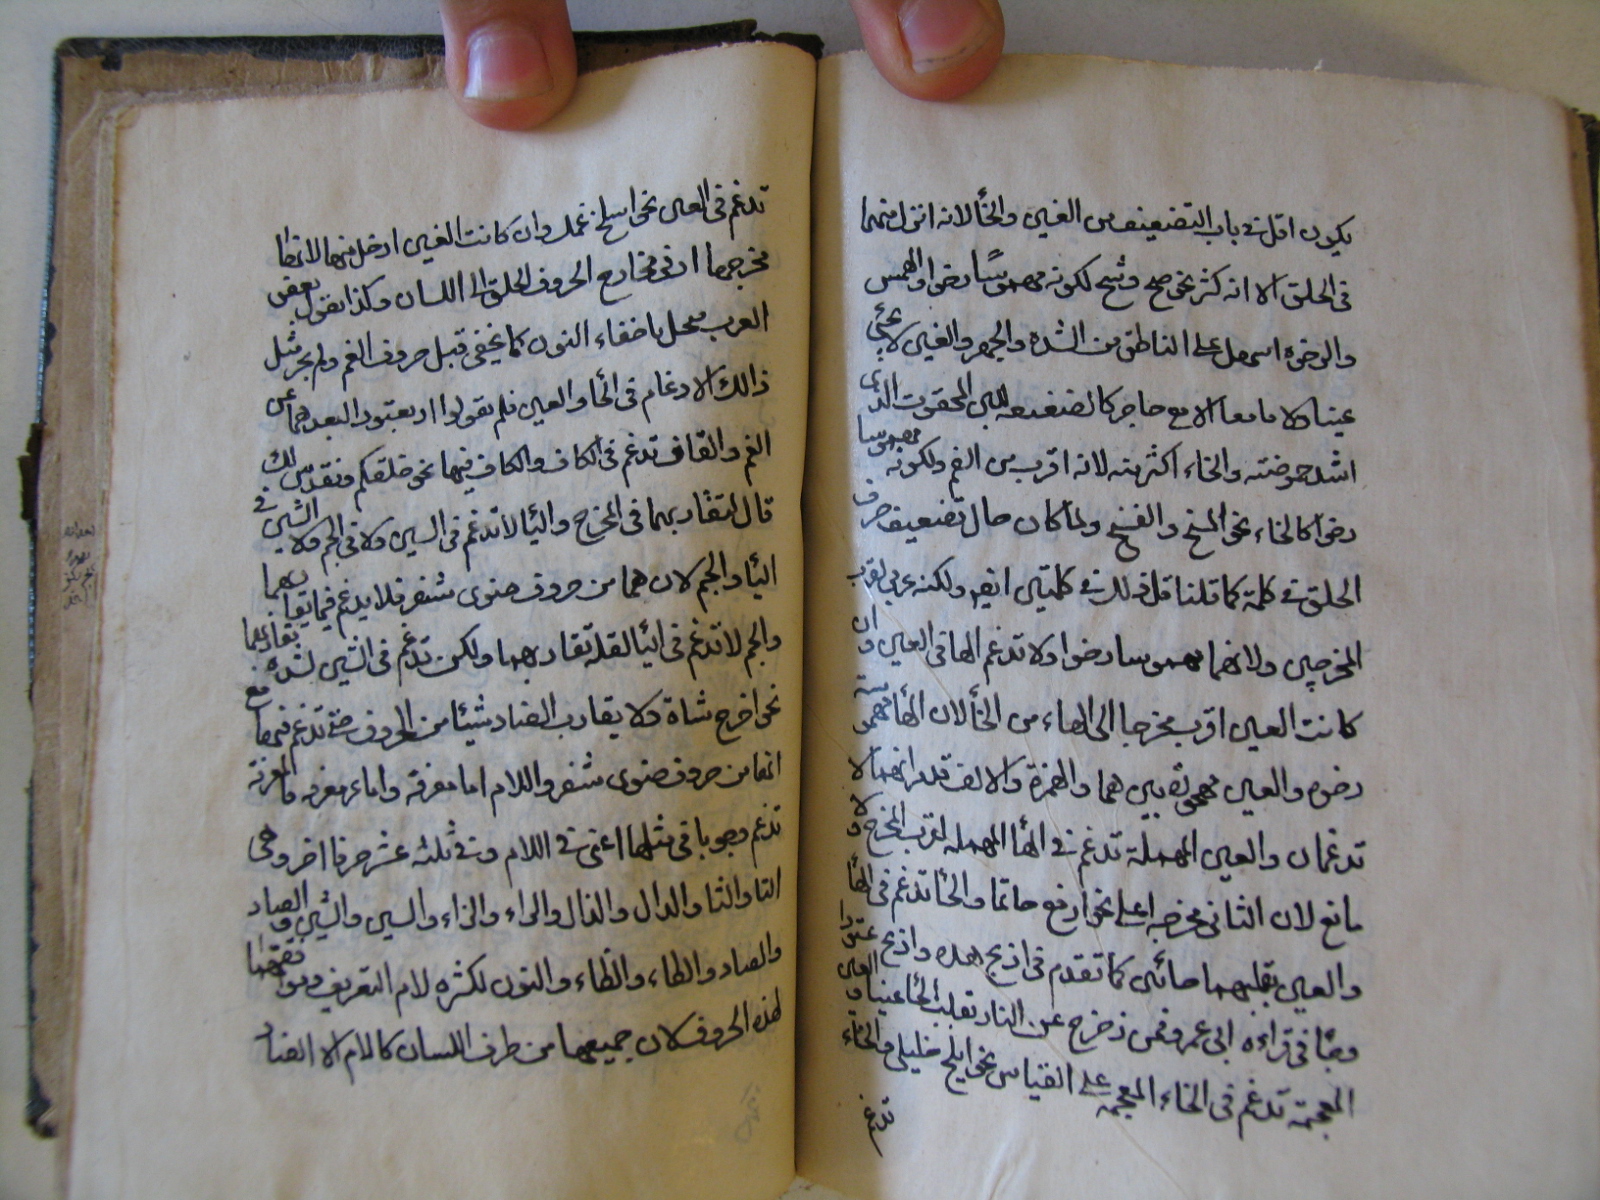 يكون اقل في باب التضعيف من الغين والخألانه انزل منهما
فى الحلق الا انه كثر نحو صح وشح لكونه مهموسًا رخوا والهمس
والرخوة اسهل على الناطق من الشدة والجهر والغين لا يجئ
عينا ولا لاما معا الا مع حاجز كالضغيغه للبن المحقوت الذى
اشد حموضته والخاء اكثر منه لانه اقرب من الفم ولكونه مهموسا
رخوا كالحاء نحو المخ والفخ ولما كان حال تضعيف حرف
الحلق في كلمة كما قلنا قل ذلك في كلمتين ايضا ولكنه لقرب
المخرجين ولانهما مهموسا رخوا ولا تدغم الها فى العين وان
كانت العين اقرب مخرجا الى الهاء من الخألان الهأ مهموسة
رخوه والعين مهموثه بين هما والهمزة والالف قد انهما لا
تدغمان والعين المهملة تدغم في الهأ المهمله لقرب المخرج ولا
مانع لان الثانى مخرجه اعلى نحو ارفع حاتما والحا تدغم فى الهأ
والعين بقلبهما حائين كما تقدم فى اذبح هذه واذبح عتودا
وجأ فى قراءه ابى عمرو فمن زحزح عن النار تقلب الحأ عينا والغين
المعجمة تدغم فى الخاء المعجمه على القياس نحو ابلخ خليلى والخاء
تدغم
تدغم فى الغين نحو اسلخ غمك وان كانت الغين ادخل منها لان
مخرجهما ادنى مخارج الحروف الحلق الى اللسان وكذا يقول بعض
العرب منخل باخفاء النون كما يخفى قبل حروف الفم ولم يجز مثل
ذالك الادغام فى الحا والعين فلم يقولوا اربعتبودا لبعدهما عن
الفم والقاف تدغم فى الكاف والكاف فيها نحو خلقكم ونقدس لك
قال لتقاربهما فى المخرج واليا لا تدغم فى السين ولا فى الجيم ولا الشين فى
اليا والجيم لان هما من حروف ضوى مشفر فلا يدغم فيما يقاربهما
والجيم لا تدغم فى اليا لقلة تقاربهما ولكن تدغم فى الشين لشده تقاربهما
نحو اخرج شاة ولا يقارب الضاد شيئا من الحروف حتى تدغم فيها مع
انها من حروف ضوى مشفر واللام اما معرفة واما غير معرفه فا لمعرفة
تدغم وجوبا فى مثلها اعنى في اللام وفي ثلثه عشر حرفا اخر وهى
التا والثا والدال والذال والراء والزاء والسين والشين والصاد
والضاد والطاء والظاء والنون لكثره لام التعريف وموافقتها
لهذه الحروف لان جميعها من طرف اللسان كاللام الا الضاد